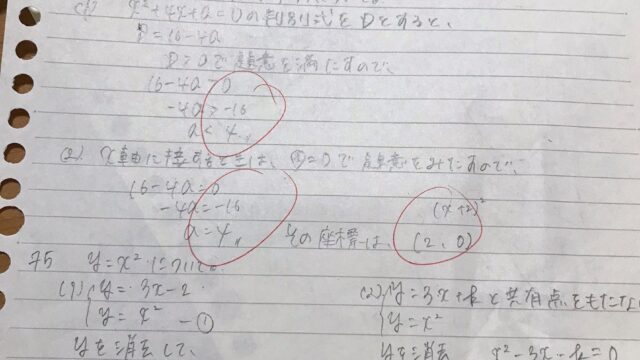 x²+4x+a=0の判別式をDとすると、
D=16-4a
D>0で題意を満たすので、
16-4a>0
-4a>-16
a<4
(2) x軸に接するときは、D=0で題意をみたすので、
16-4a=0
-4a=-16
a=4
(x+2)²
その座標は、(2, 0)
75 y=x²について。
(1) y=3x-2
y=x² -①
yを消去して、
(2) y=3x+kと共有点をもたない
y=x²
yを消去 x²-3x-k=0